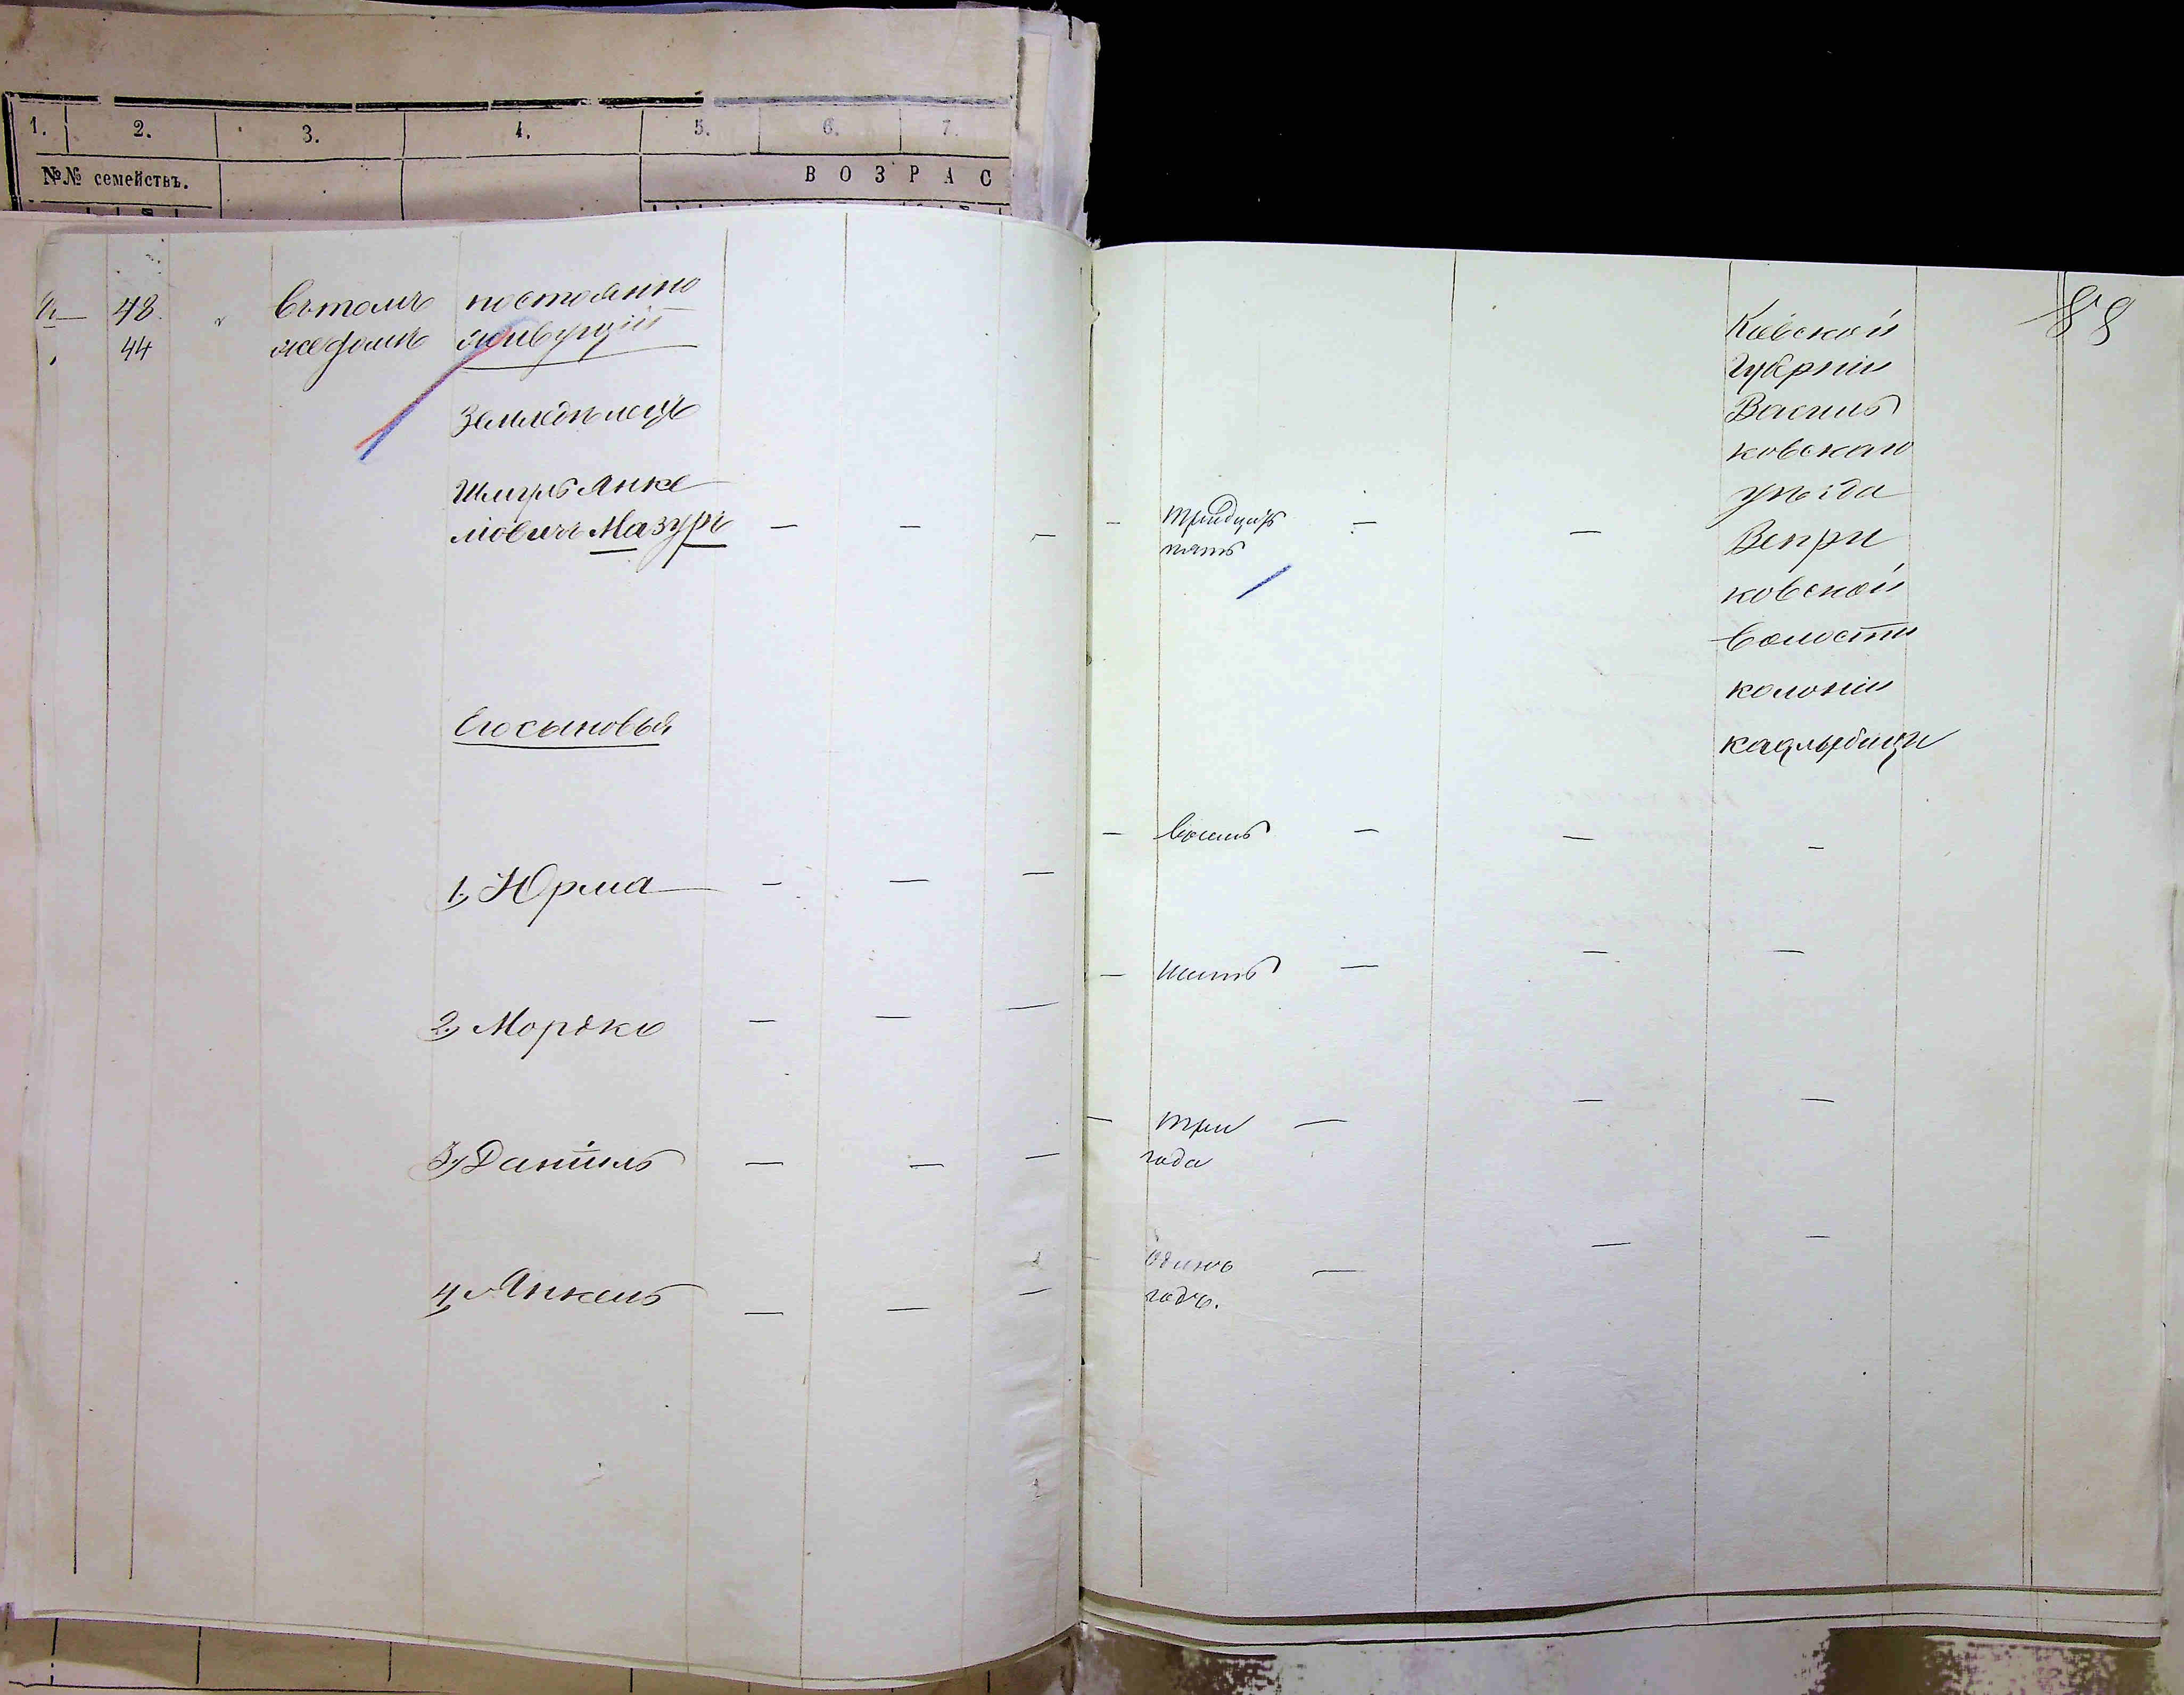 1. 2. 3. 4. 5. 6. 7.
№№ семействъ.
ВОЗРАС
48. въ томъ постоянно
44 же домѣ живущій
Земледѣлецъ
Шмуль Янке
ліовичъ Мазуръ — — —
Его сыновья
1, Юрма — — —
2, Мордко — — —
3, Даніиль — — —
4, Янкель — — —
88
Кіевской
Губерніи
Василь
ковскаго
уѣзда
— тридцать — — Вепри
пять
ковской
волости
колоніи
— восемь — — —
— шесть — — —
— три — — —
года
одинъ — — —
годъ.